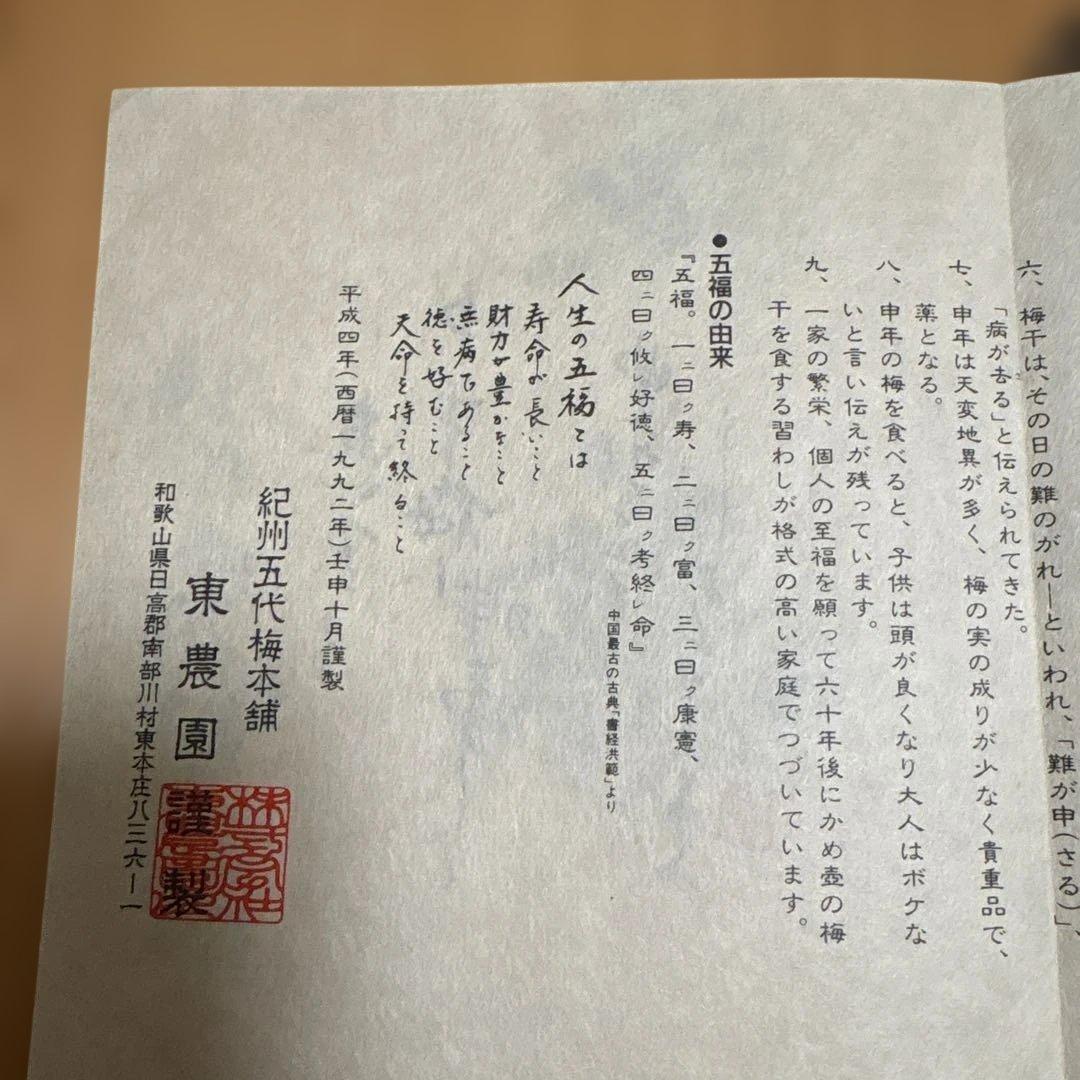 六、梅干は、その日の難のがれ―といわれ、「難が申（さる）」、
「病が去る」と伝えられてきた。
七、申年は天変地異が多く、梅の実の成りが少なく貴重品で、
薬となる。
八、申年の梅を食べると、子供は頭が良くなり大人はボケな
いと言い伝えが残っています。
九、一家の繁栄、個人の至福を願って六十年後にかめ壺の梅
干を食する習わしが格式の高い家庭でつづいています。
●五福の由来
『五福。一ニ曰ク寿、二ニ曰ク富、三ニ曰ク康寧、
四ニ曰ク攸レ好徳、五ニ曰ク考終レ命』
中国最古の古典「書経洪範」より
人生の五福とは
寿命が長いこと
財力が豊かなこと
無病であること
徳を好むこと
天命を持って終ること
平成四年（西暦一九九二年）壬申十月謹製
紀州五代梅本舗
東農園
謹製
和歌山県日高郡南部川村東本庄八三六―一